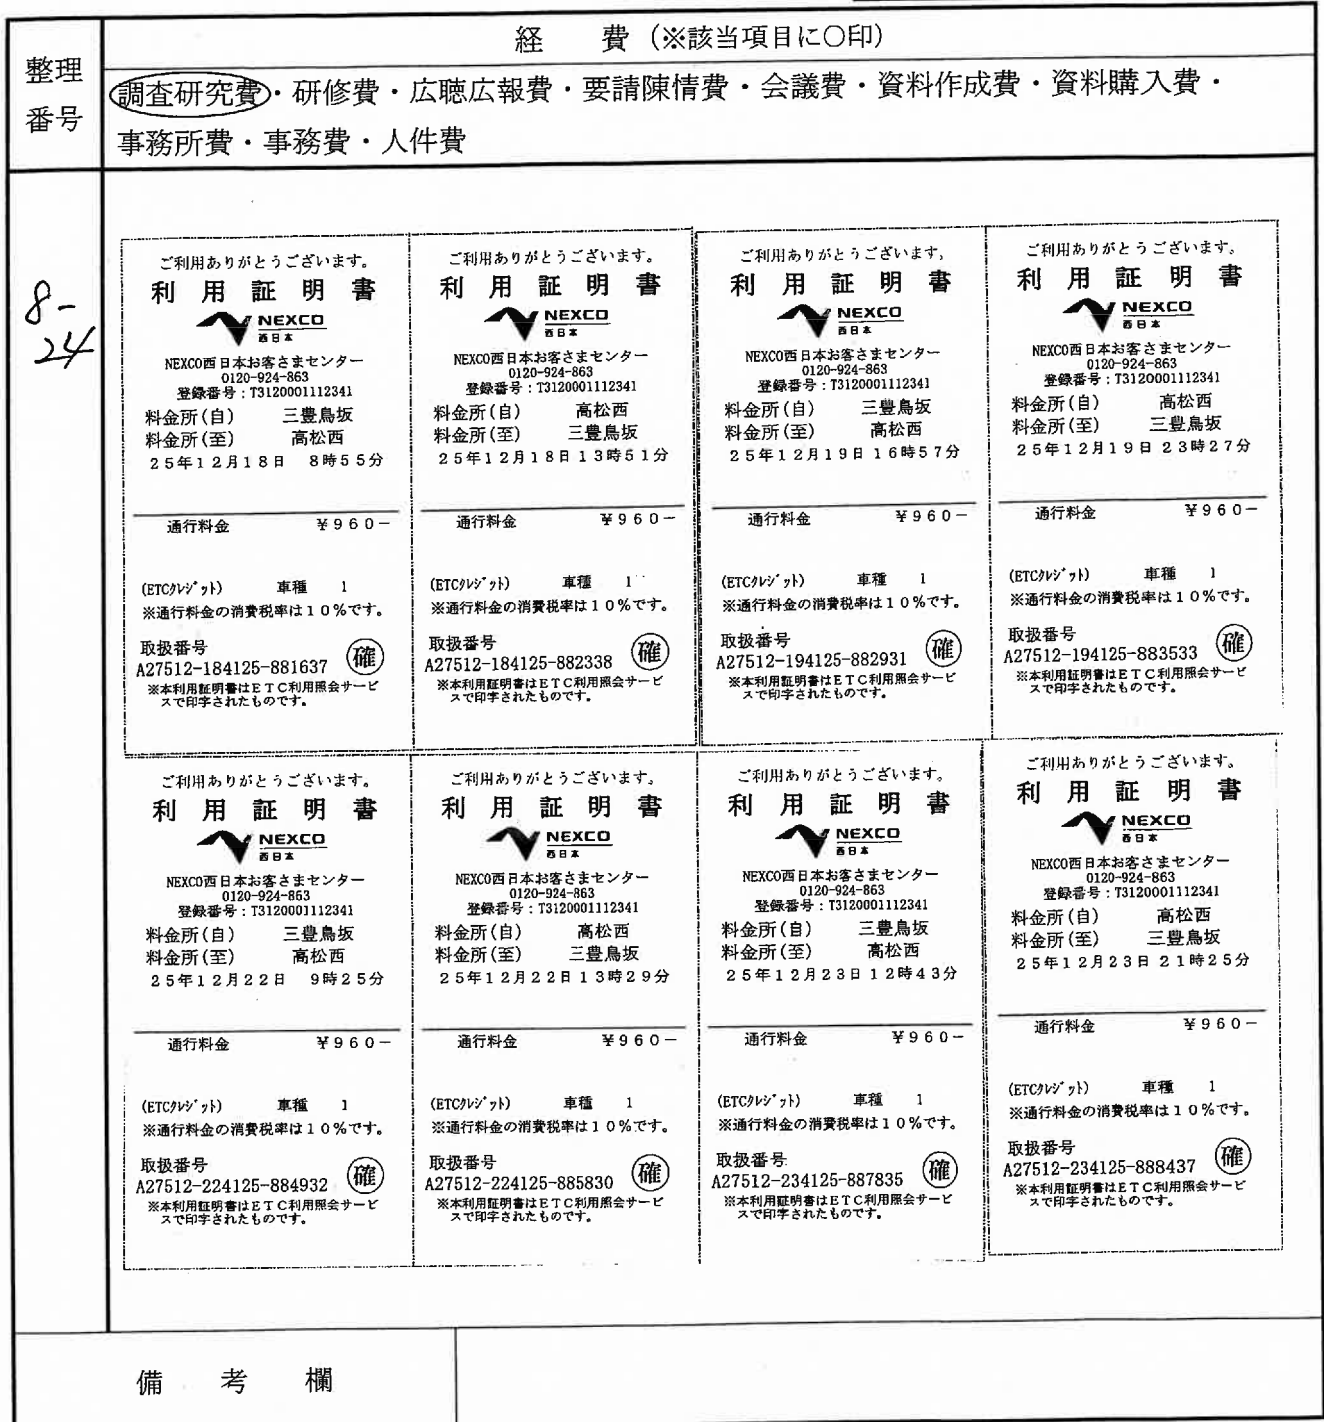 経　費（※該当項目に〇印）
整理
番号
調査研究費・研修費・広聴広報費・要請陳情費・会議費・資料作成費・資料購入費・
事務所費・事務費・人件費
8-
24
ご利用ありがとうございます。
利用証明書
NEXCO
西日本
NEXCO西日本お客さまセンター
0120-924-863
登録番号：T3120001112341
料金所(自)　三豊鳥坂
料金所(至)　高松西
25年12月18日　8時55分
通行料金　¥960－
(ETCクレジット)　車種　1
※通行料金の消費税率は10%です。
取扱番号
A27512-184125-881637　確
※本利用証明書はETC利用照会サービ
スで印字されたものです。
ご利用ありがとうございます。
利用証明書
NEXCO
西日本
NEXCO西日本お客さまセンター
0120-924-863
登録番号：T3120001112341
料金所(自)　高松西
料金所(至)　三豊鳥坂
25年12月18日13時51分
通行料金　¥960－
(ETCクレジット)　車種　1
※通行料金の消費税率は10%です。
取扱番号
A27512-184125-882338　確
※本利用証明書はETC利用照会サービ
スで印字されたものです。
ご利用ありがとうございます。
利用証明書
NEXCO
西日本
NEXCO西日本お客さまセンター
0120-924-863
登録番号：T3120001112341
料金所(自)　三豊鳥坂
料金所(至)　高松西
25年12月19日16時57分
通行料金　¥960－
(ETCクレジット)　車種　1
※通行料金の消費税率は10%です。
取扱番号
A27512-194125-882931　確
※本利用証明書はETC利用照会サービ
スで印字されたものです。
ご利用ありがとうございます。
利用証明書
NEXCO
西日本
NEXCO西日本お客さまセンター
0120-924-863
登録番号：T3120001112341
料金所(自)　高松西
料金所(至)　三豊鳥坂
25年12月19日23時27分
通行料金　¥960－
(ETCクレジット)　車種　1
※通行料金の消費税率は10%です。
取扱番号
A27512-194125-883533　確
※本利用証明書はETC利用照会サービ
スで印字されたものです。
ご利用ありがとうございます。
利用証明書
NEXCO
西日本
NEXCO西日本お客さまセンター
0120-924-863
登録番号：T3120001112341
料金所(自)　三豊鳥坂
料金所(至)　高松西
25年12月22日　9時25分
通行料金　¥960－
(ETCクレジット)　車種　1
※通行料金の消費税率は10%です。
取扱番号
A27512-224125-884932　確
※本利用証明書はETC利用照会サービ
スで印字されたものです。
ご利用ありがとうございます。
利用証明書
NEXCO
西日本
NEXCO西日本お客さまセンター
0120-924-863
登録番号：T3120001112341
料金所(自)　高松西
料金所(至)　三豊鳥坂
25年12月22日13時29分
通行料金　¥960－
(ETCクレジット)　車種　1
※通行料金の消費税率は10%です。
取扱番号
A27512-224125-885830　確
※本利用証明書はETC利用照会サービ
スで印字されたものです。
ご利用ありがとうございます。
利用証明書
NEXCO
西日本
NEXCO西日本お客さまセンター
0120-924-863
登録番号：T3120001112341
料金所(自)　三豊鳥坂
料金所(至)　高松西
25年12月23日12時43分
通行料金　¥960－
(ETCクレジット)　車種　1
※通行料金の消費税率は10%です。
取扱番号
A27512-234125-887835　確
※本利用証明書はETC利用照会サービ
スで印字されたものです。
ご利用ありがとうございます。
利用証明書
NEXCO
西日本
NEXCO西日本お客さまセンター
0120-924-863
登録番号：T3120001112341
料金所(自)　高松西
料金所(至)　三豊鳥坂
25年12月23日21時25分
通行料金　¥960－
(ETCクレジット)　車種　1
※通行料金の消費税率は10%です。
取扱番号
A27512-234125-888437　確
※本利用証明書はETC利用照会サービ
スで印字されたものです。
備考欄